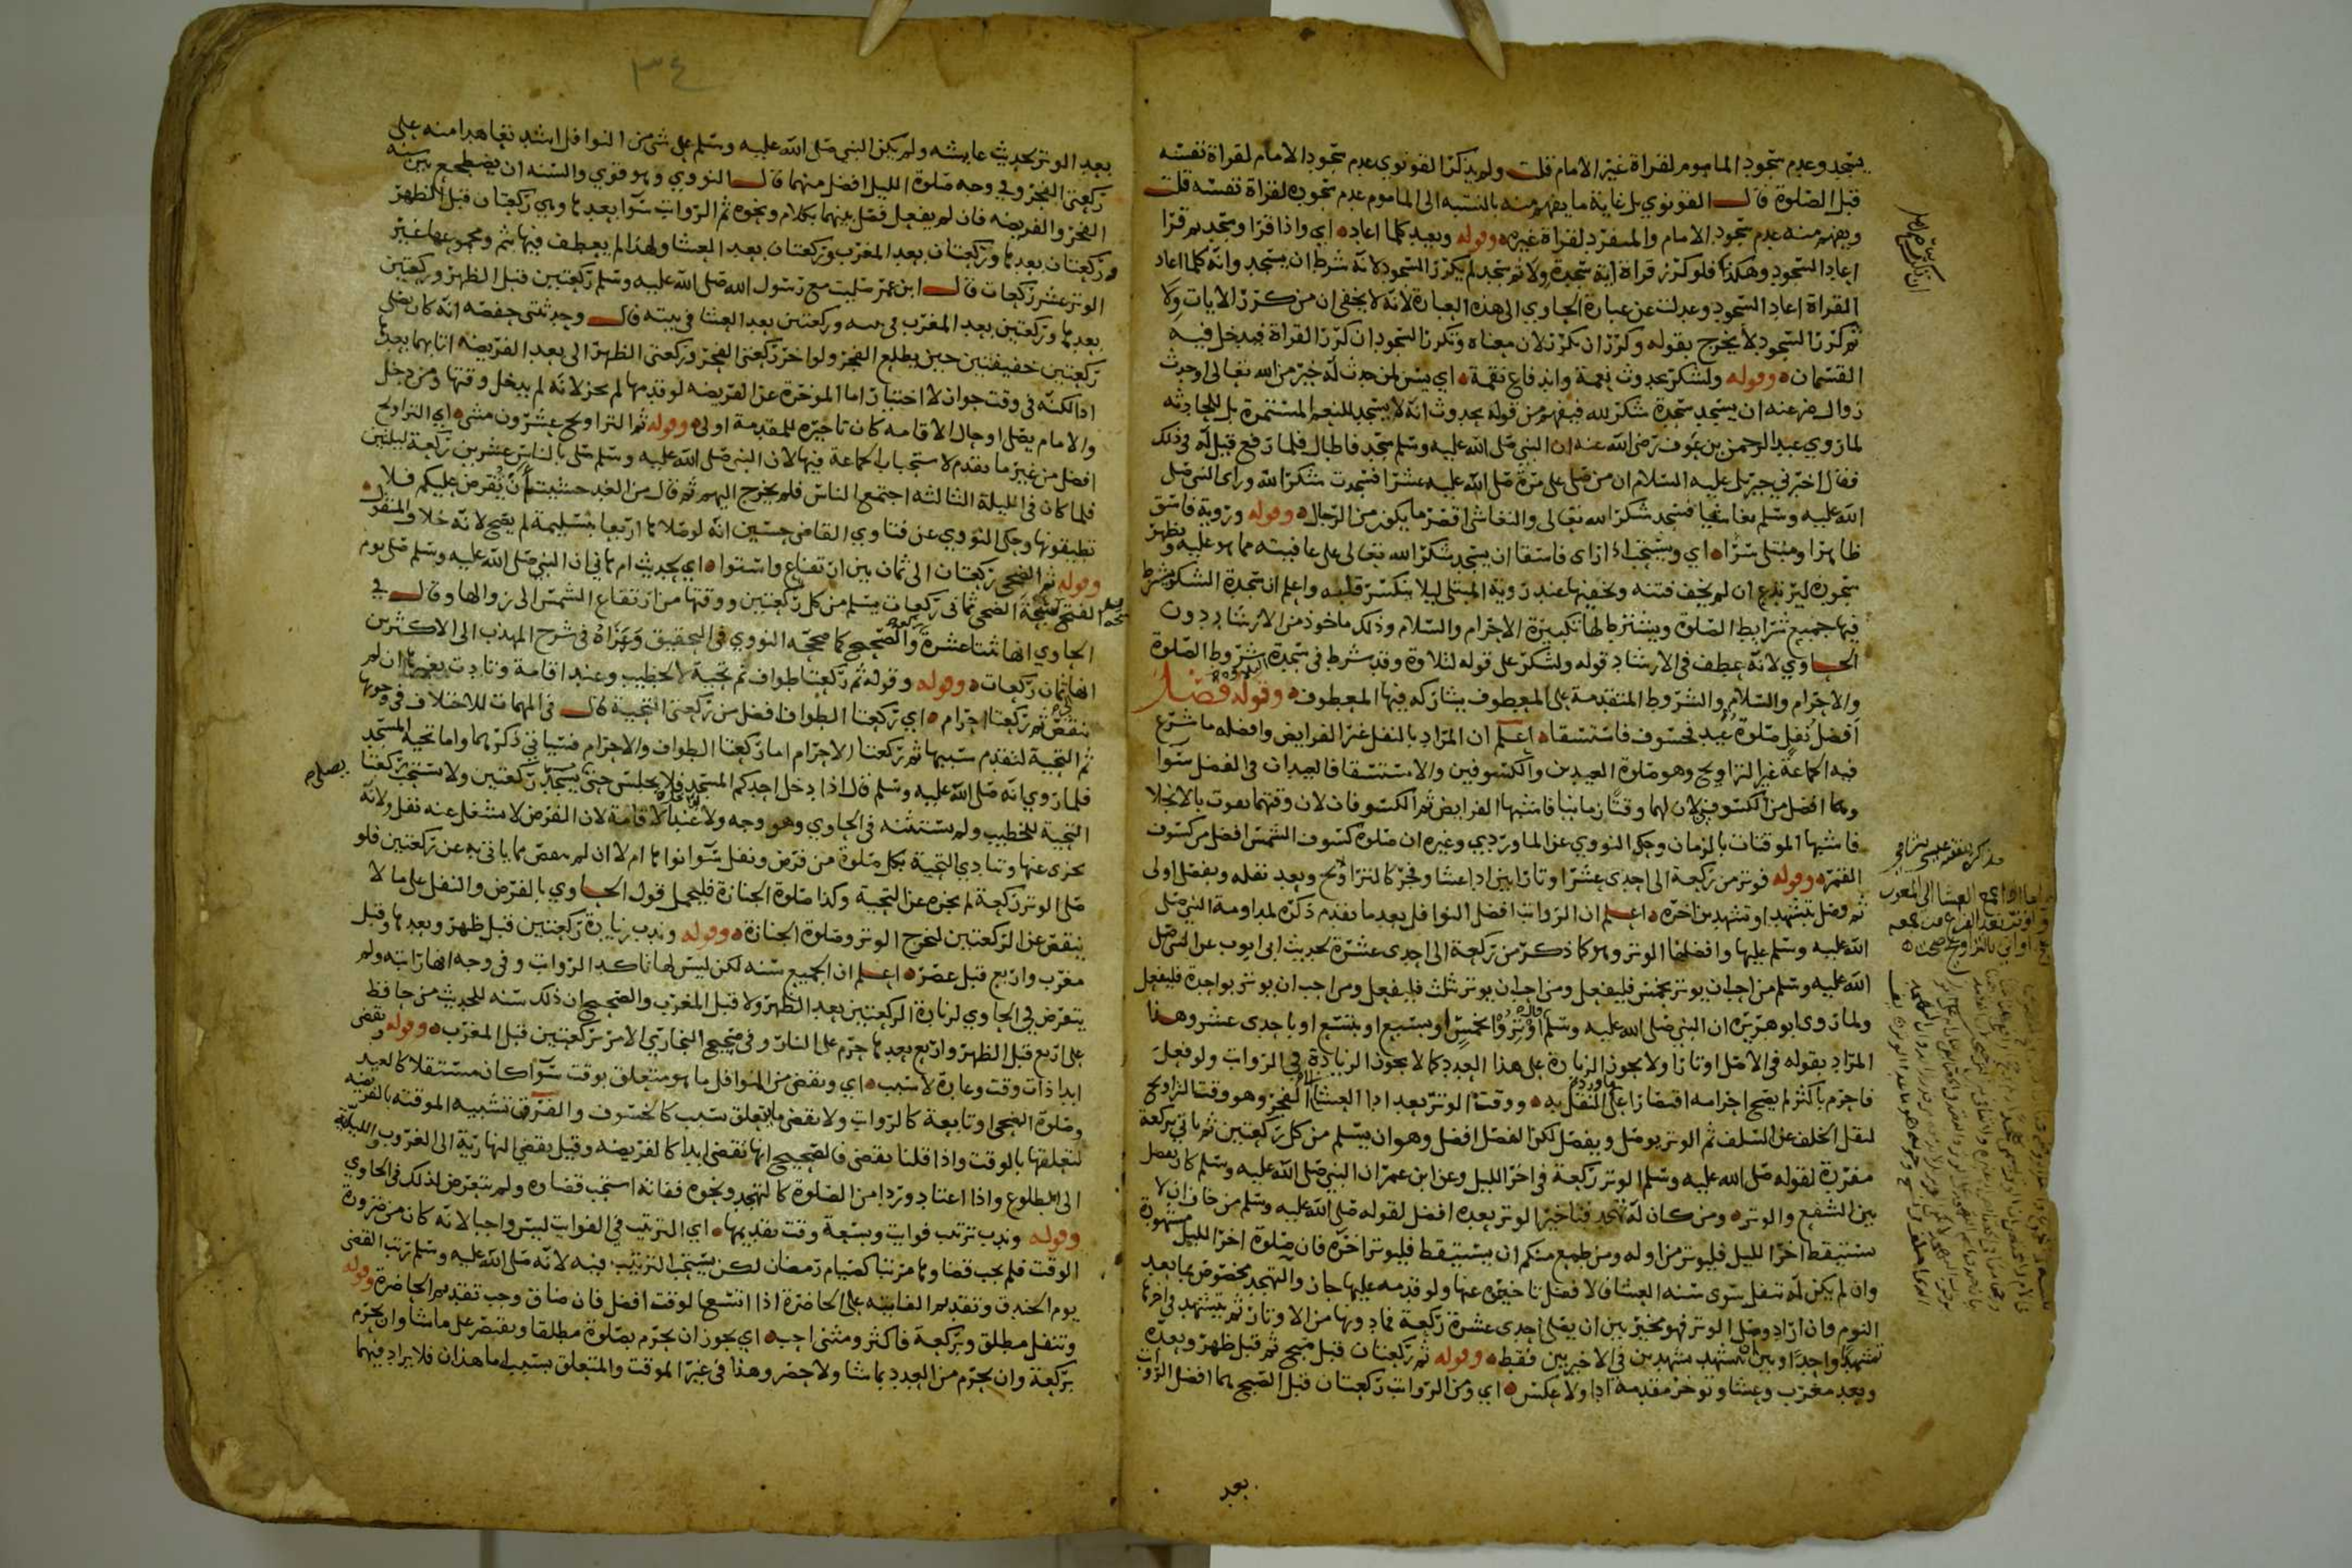 يسجد وعدم سجود الماموم لقراة غير الامام قلت ولم يذكر القونوي عدم سجود الامام لقراة نفسه
قبل الصلوة قال القونوي بل غاية ما يفهم منه بالنسبه الى الماموم عدم سجوده لقراة نفسه قلت
ويفهم منه عدم سجود الامام والمنفرد لقراة غيره وقوله وبعيد كلما اعاده اي واذا قرا وسجد ثم قرا
اعاد السجود وهكذا فلو كرر قراة اية سجدة ولا ثم سجد لم يكرر السجود لانه شرط ان يسجد وانه كلما اعاد
القراة اعاد السجود وعدلت عن عبارة الحاوي الى هذه العبارة لانه لا يخفى ان من كرر الايات ولا
ثم كرر السجود لا يخرج بقوله وكرر ان كرر لان معناه وتكرر السجود ان كرر القراة فيدخل فيه
القسمان وقوله ولشكر بحدوث نعمة واندفاع نقمة اي يسن لمن حدث له خير من الله تعالى او حدث
زوال ضر عنه ان يسجد سجدة شكر لله فيفهم من قوله بحدوث انه لا يسجد للنعم المستمرة بل للحادثه
لما روي عبد الرحمن بن عوف رضي الله عنه ان النبي صلى الله عليه وسلم سجد فاطال فلما رفع قيل له في ذلك
فقال اخبرني جبريل عليه السلام ان من صلى علي مرة صلى الله عليه عشرا فسجدت شكرا لله وراى النبي صلى
الله عليه وسلم نغاشيا فسجد شكرا لله تعالى والنغاشي اقصر ما يكون من الرجال وقوله ورؤية فاسق
ظاهرا ومبتلى سرا اي ويستحب اذا راى فاسقا ان يسجد شكرا لله تعالى على عافيته مما هو عليه ويظهر
سجوده ليرتدع ان لم يخف فتنه ويخفيها عند رؤية المبتلى ليلا ينكسر قلبه واعلم ان سجدة الشكر يشترط
فيها جميع شرايط الصلوة ويشترط لها تكبيرة الاحرام والسلام وذلك ماخوذ من الارشاد دون
الحاوي لانه عطف في الارشاد قوله ولشكر على قوله لتلاوة وقد شرط في سجدة شروط الصلوة
والاحرام والسلام والشروط المتقدمة على المعطوف يشاركه فيها المعطوف وقوله فصل
افضل نفل صلوة عيد فخسوف فاستسقا اعلم ان المراد بالنفل غير الفرايض وافضله ما شرع
فيه الجماعة غير التراويح وهو صلوة العيدين والكسوفين والاستسقا فالعيدان في الفضل سوا
وهما افضل من الكسوفين لان لهما وقتا زمانيا فاشبها الفرايض ثم الكسوفان لان وقتهما يفوت بالانجلا
فاشبها الموقتات بالزمان وحكى النووي عن الماوردي وغيره ان صلوة كسوف الشمس افضل من كسوف
القمر وقوله فوتر من ركعة الى احدى عشر اوتارا بين ادا عشا وفجر كالتراويح وبعد نفله وبفصل اولى
ثم وصل بتشهد او تشهدين اخره اعلم ان الرواتب افضل النوافل بعد ما تقدم ذكره لمداومة النبي صلى
الله عليه وسلم عليها وافضلها الوتر وهو كما ذكر من ركعة الى احدى عشرة لحديث ابى ايوب عن النبي صلى
الله عليه وسلم من احب ان يوتر بخمس فليفعل ومن احب ان يوتر بثلث فليفعل ومن احب ان يوتر بواحدة فليفعل
ولما روى ابو هريرة ان النبي صلى الله عليه وسلم قال اوتروا بخمس او بسبع او بتسع او باحدى عشر وهذا
المراد بقوله في الاصل اوتارا ولا يجوز الزيادة على هذا العدد كما لا يجوز الزيادة في الرواتب ولو فعل
فاحرم باكثر لم يصح احرامه اقتصارا على ما ورد النقل به ووقت الوتر بعد ادا العشا الى الفجر وهو وقت التراويح
لنقل الخلف عن السلف ثم الوتر يوصل ويفصل لكن الفصل افضل وهو ان يسلم من كل ركعتين ثم ياتي بركعة
مفردة لقوله صلى الله عليه وسلم الوتر ركعة في اخر الليل وعن ابن عمر ان النبي صلى الله عليه وسلم كان يفصل
بين الشفع والوتر ومن كان له تهجد فتاخير الوتر بعده افضل لقوله صلى الله عليه وسلم من خاف ان لا
يستيقظ اخر الليل فليوتر من اوله ومن طمع منكم ان يستيقظ فليوتر اخره فان صلوة اخر الليل مشهودة
وان لم يكن له تنفل سوى سنة العشا فالافضل تاخيره عنها ولو قدمه عليها جاز والتهجد مخصوص بما بعد
النوم وان اراد وصل الوتر فهو مخير بين ان يصلي احدى عشرة ركعة فما دونها من الاوتار ثم يتشهد في اخرها
تشهدا واحدا وبين ان يتشهد تشهدين في الاخيرين فقط وقوله ثم ركعتان قبل صبح ثم قبل ظهر وبعده
وبعد مغرب وعشا وتوخر مقدمة ادا ولا عكس اي ومن الرواتب ركعتان قبل الصبح هما افضل الرواتب
بعد
٣٤
بعد الوتر لحديث عايشه ولم يكن النبي صلى الله عليه وسلم على شي من النوافل اشد تعاهدا منه على
ركعتي الفجر وفي وجه صلوة الليل افضل منهما قال النووي وهو قوي والسنه ان يضطجع بين سنه
الفجر والفريضه فان لم يفعل فصل بينهما بكلام ونحوه ثم الرواتب سوا بعدها وهي ركعتان قبل الظهر
وركعتان بعدها وركعتان بعد المغرب وركعتان بعد العشا ولهذا لم يعطف فيها بثم ومجموعها غير
الوتر عشر ركعات قال ابن عمر صليت مع رسول الله صلى الله عليه وسلم ركعتين قبل الظهر وركعتين
بعدها وركعتين بعد المغرب في بيته وركعتين بعد العشا في بيته قال وحدثتني حفصه انه كان يصلي
ركعتين خفيفتين حين يطلع الفجر ولو اخر ركعتي الفجر وركعتي الظهر الى بعد الفريضه اتى بهما بعدها
ادا لكنه في وقت جواز لا اختيار اما الموخرة عن الفريضه لو قدمها لم يجز لانه لم يدخل وقتها ومن دخل
والامام يصلي او حال الاقامه كان تاخيره للمقدمة اولى وقوله ثم التراويح عشرون مثنى اي التراويح
افضل من غير ما تقدم لاستحباب الجماعة فيها لان النبي صلى الله عليه وسلم صلى بالناس عشرين ركعة ليلتين
فلما كان في الليلة الثالثه اجتمع الناس فلم يخرج اليهم ثم قال من الغد خشيت ان تفرض عليكم فلا
تطيقونها وحكى النووي عن فتاوي القاضي حسين انه لو صلاها اربعا بتسليمة لم يصح لانه خلاف المنقول
وقوله ثم الضحى ركعتان الى ثمان بين ارتفاع واستوا اي لحديث ام هاني ان النبي صلى الله عليه وسلم صلى يوم
الفتح سبحة الضحى ثماني ركعات يسلم من كل ركعتين ووقتها من ارتفاع الشمس الى زوالها وقال في
الحاوي انها ثنتا عشرة والصحيح كما صححه النووي في التحقيق وعزاه في شرح المهذب الى الاكثرين
انها ثمان ركعات وقوله وقوله ثم ركعتا طواف ثم تحية لا لخطيب وعند اقامة وتادت بغيرها ان لم
ينقص ثم ركعتا احرام اي ركعتا الطواف افضل من ركعتي التحية قال في المهمات للاختلاف في وجوبها
ثم التحية لتقدم سببها ثم ركعتا الاحرام اما ركعتا الطواف والاحرام فسياتي ذكرهما واما تحية المسجد
فلما روي انه صلى الله عليه وسلم قال اذا دخل احدكم المسجد فلا يجلس حتى يسجد ركعتين ولا تستحب ركعتا
يصلي
التحية للخطيب ولم يستثنه في الحاوي وهو وجه ولا عند الاقامة لان الفرض لا يشغل عنه نفل ولانه
يجزى عنها وتتادي التحية بكل صلوة من فرض ونفل سوا نواها ام لا ان لم ينقص ما ياتي به عن ركعتين فلو
صلى الوتر ركعة لم يجزه عن التحية وكذا صلوة الجنازة فليحمل قول الحاوي بالفرض والنفل على ما لا
ينقص عن الركعتين ليخرج الوتر وصلوة الجنازة وقوله وندب زيادة ركعتين قبل ظهر وبعدها وقبل
مغرب واربع قبل عصر اعلم ان الجميع سنه لكن ليس لها تاكد الرواتب وفي وجه انها راتبه ولم
يتعرض في الحاوي لزيادة الركعتين بعد الظهر ولا قبل المغرب والصحيح ان ذلك سنه للحديث من حافظ
على اربع قبل الظهر واربع بعدها حرم على النار وفي صحيح البخاري الامر بركعتين قبل المغرب وقوله ويقضى
ابدا ذات وقت وعادة لا سبب اي ويقضى من النوافل ما هو متعلق بوقت سوا كان مستقلا كالعيد
وصلوة الضحى او تابعة كالرواتب ولا يقضى ما يتعلق بسبب كالخسوف والفرق تشبيه الموقته بالفريضه
لتعلقها بالوقت واذا قلنا يقضى فالصحيح انها تقضى ابدا كالفريضه وقيل يقضى النهارية الى الغروب والليلية
الى الطلوع واذا اعتاد وردا من الصلوة كالتهجد ونحوه ففاته استحب قضاوه ولم يتعرض لذلك في الحاوي
وقوله وندب ترتيب فوايت وبسعة وقت تقديمها اي الترتيب في الفوايت ليس واجبا لانه كان من ضرورة
الوقت فلم يجب قضاوها مرتبا كصيام رمضان لكن يستحب الترتيب فيه لانه صلى الله عليه وسلم رتب القضى
يوم الخندق وتقديم الفايته على الحاضرة اذا اتسع الوقت افضل فان ضاق وجب تقديم الحاضرة وقوله
وتنفل مطلق وبركعة فاكثر ومثنى احب اي يجوز ان يحرم بصلوة مطلقا ويقتصر على ما شا وان يحرم
بركعة وان يحرم من العدد بما شا ولا حصر وهذا في غير الموقت والمتعلق بسبب اما هذان فلا يزاد فيهما